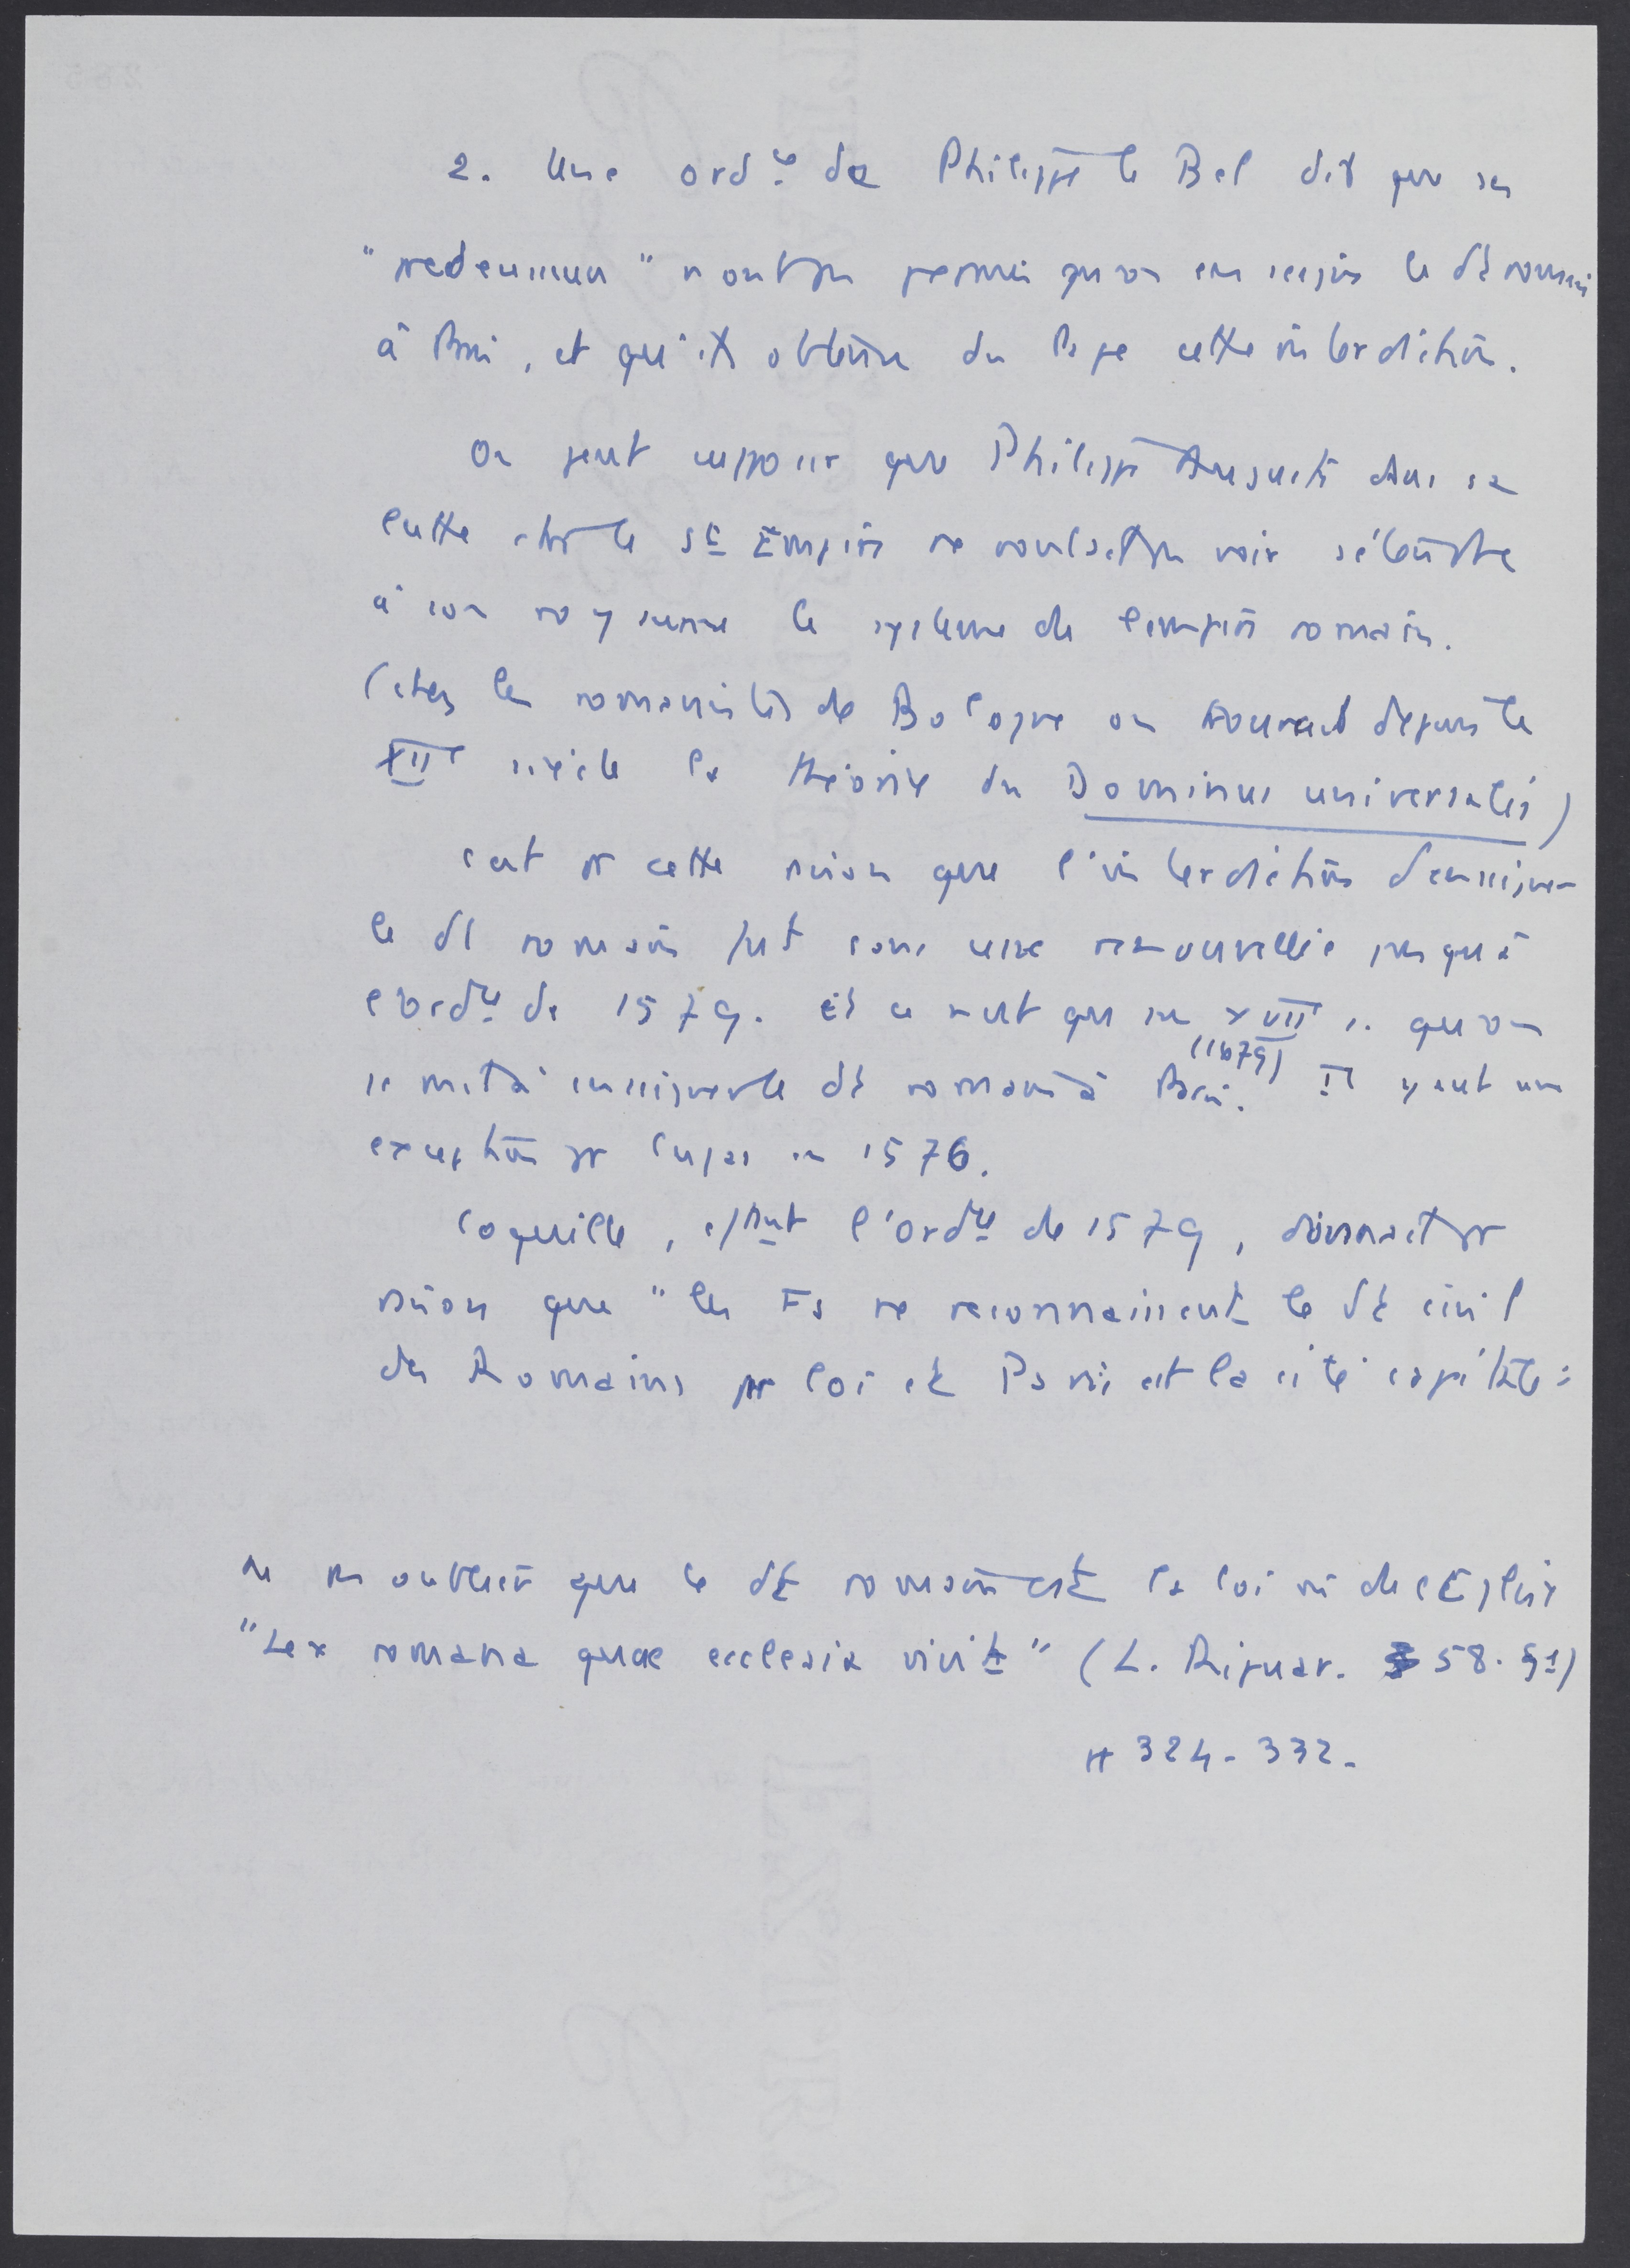 2. Une ordce de Philippe le Bel dit que ses
"predecesseurs" n'ont pas permis qu'on enseigne le dt romain
à Paris, et qu'ils obtinrent du Pape cette interdiction.
On peut supposer que Philippe Auguste dans sa
lutte ctre le St Empire ne voulait pas voir s'étendre
à son royaume le système de l'empire romain.
(chez les romanistes de Bologne on trouvait depuis le
XIIe siècle la théorie du Dominus universalis)
c'est pr cette raison que l'interdiction d'enseigner
le dt romain fut sans cesse renouvellée jusqu'à
l'ordce de 1579. Et ce n'est qu'au XVII s. qu'on
se mit à enseigner le dt romain à Paris. (1679) Il y eut une
exception pr Cujas en 1576.
Coquille, citant l'ordce de 1579, donnait pr
raison que "les Fs ne reconnaissent le dt civil
des Romains pr loi et Paris est la cité capitale"
Ne pas oublier que le dt romain est la loi de l'Eglise
"Lex romana quae ecclesia vivit" (L. Ripuar. 58. §1)
324-332.